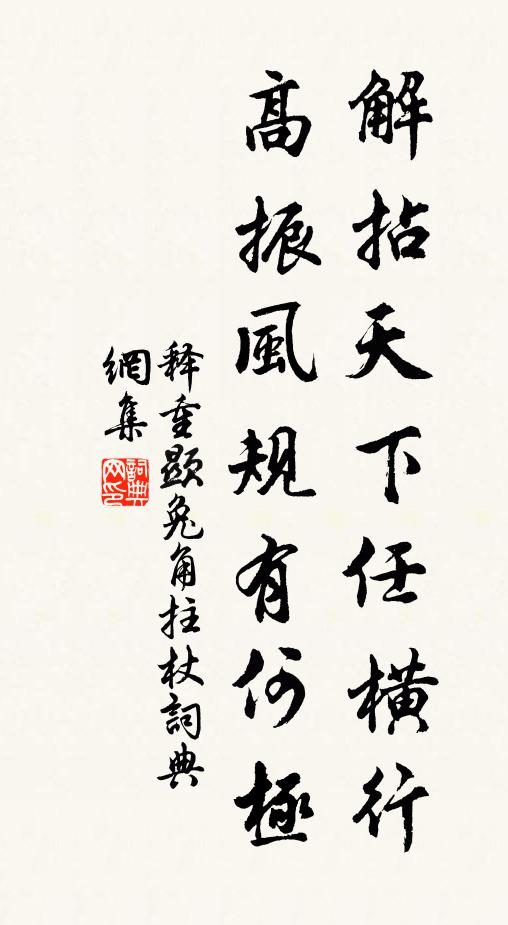 解拈天下任橫行
高振風規有何極
释重顯兔角拄杖詞典
網集
詞典网印